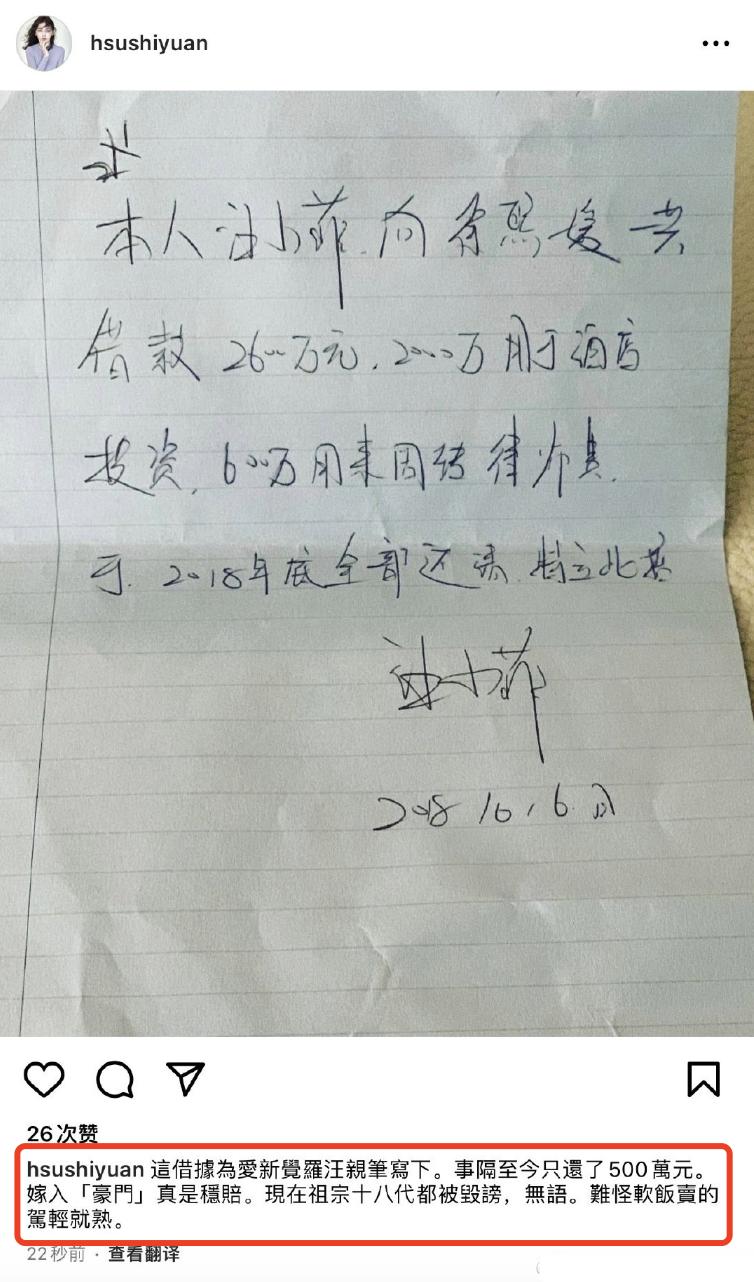 hsushiyuan
本人汪小菲.向徐熙媛共
借款2600万元.2000万用于酒店
投资.600万用来周转律师费.
于.2018年底全部还清.特立此据
汪小菲
2018 10,6日
26次赞
hsushiyuan 這借據為愛新覺羅汪親筆寫下。事隔至今只還了500萬元。
嫁入「豪門」真是穩賠。現在祖宗十八代都被毀謗，無語。難怪軟飯賣的
駕輕就熟。
22秒前 · 查看翻译